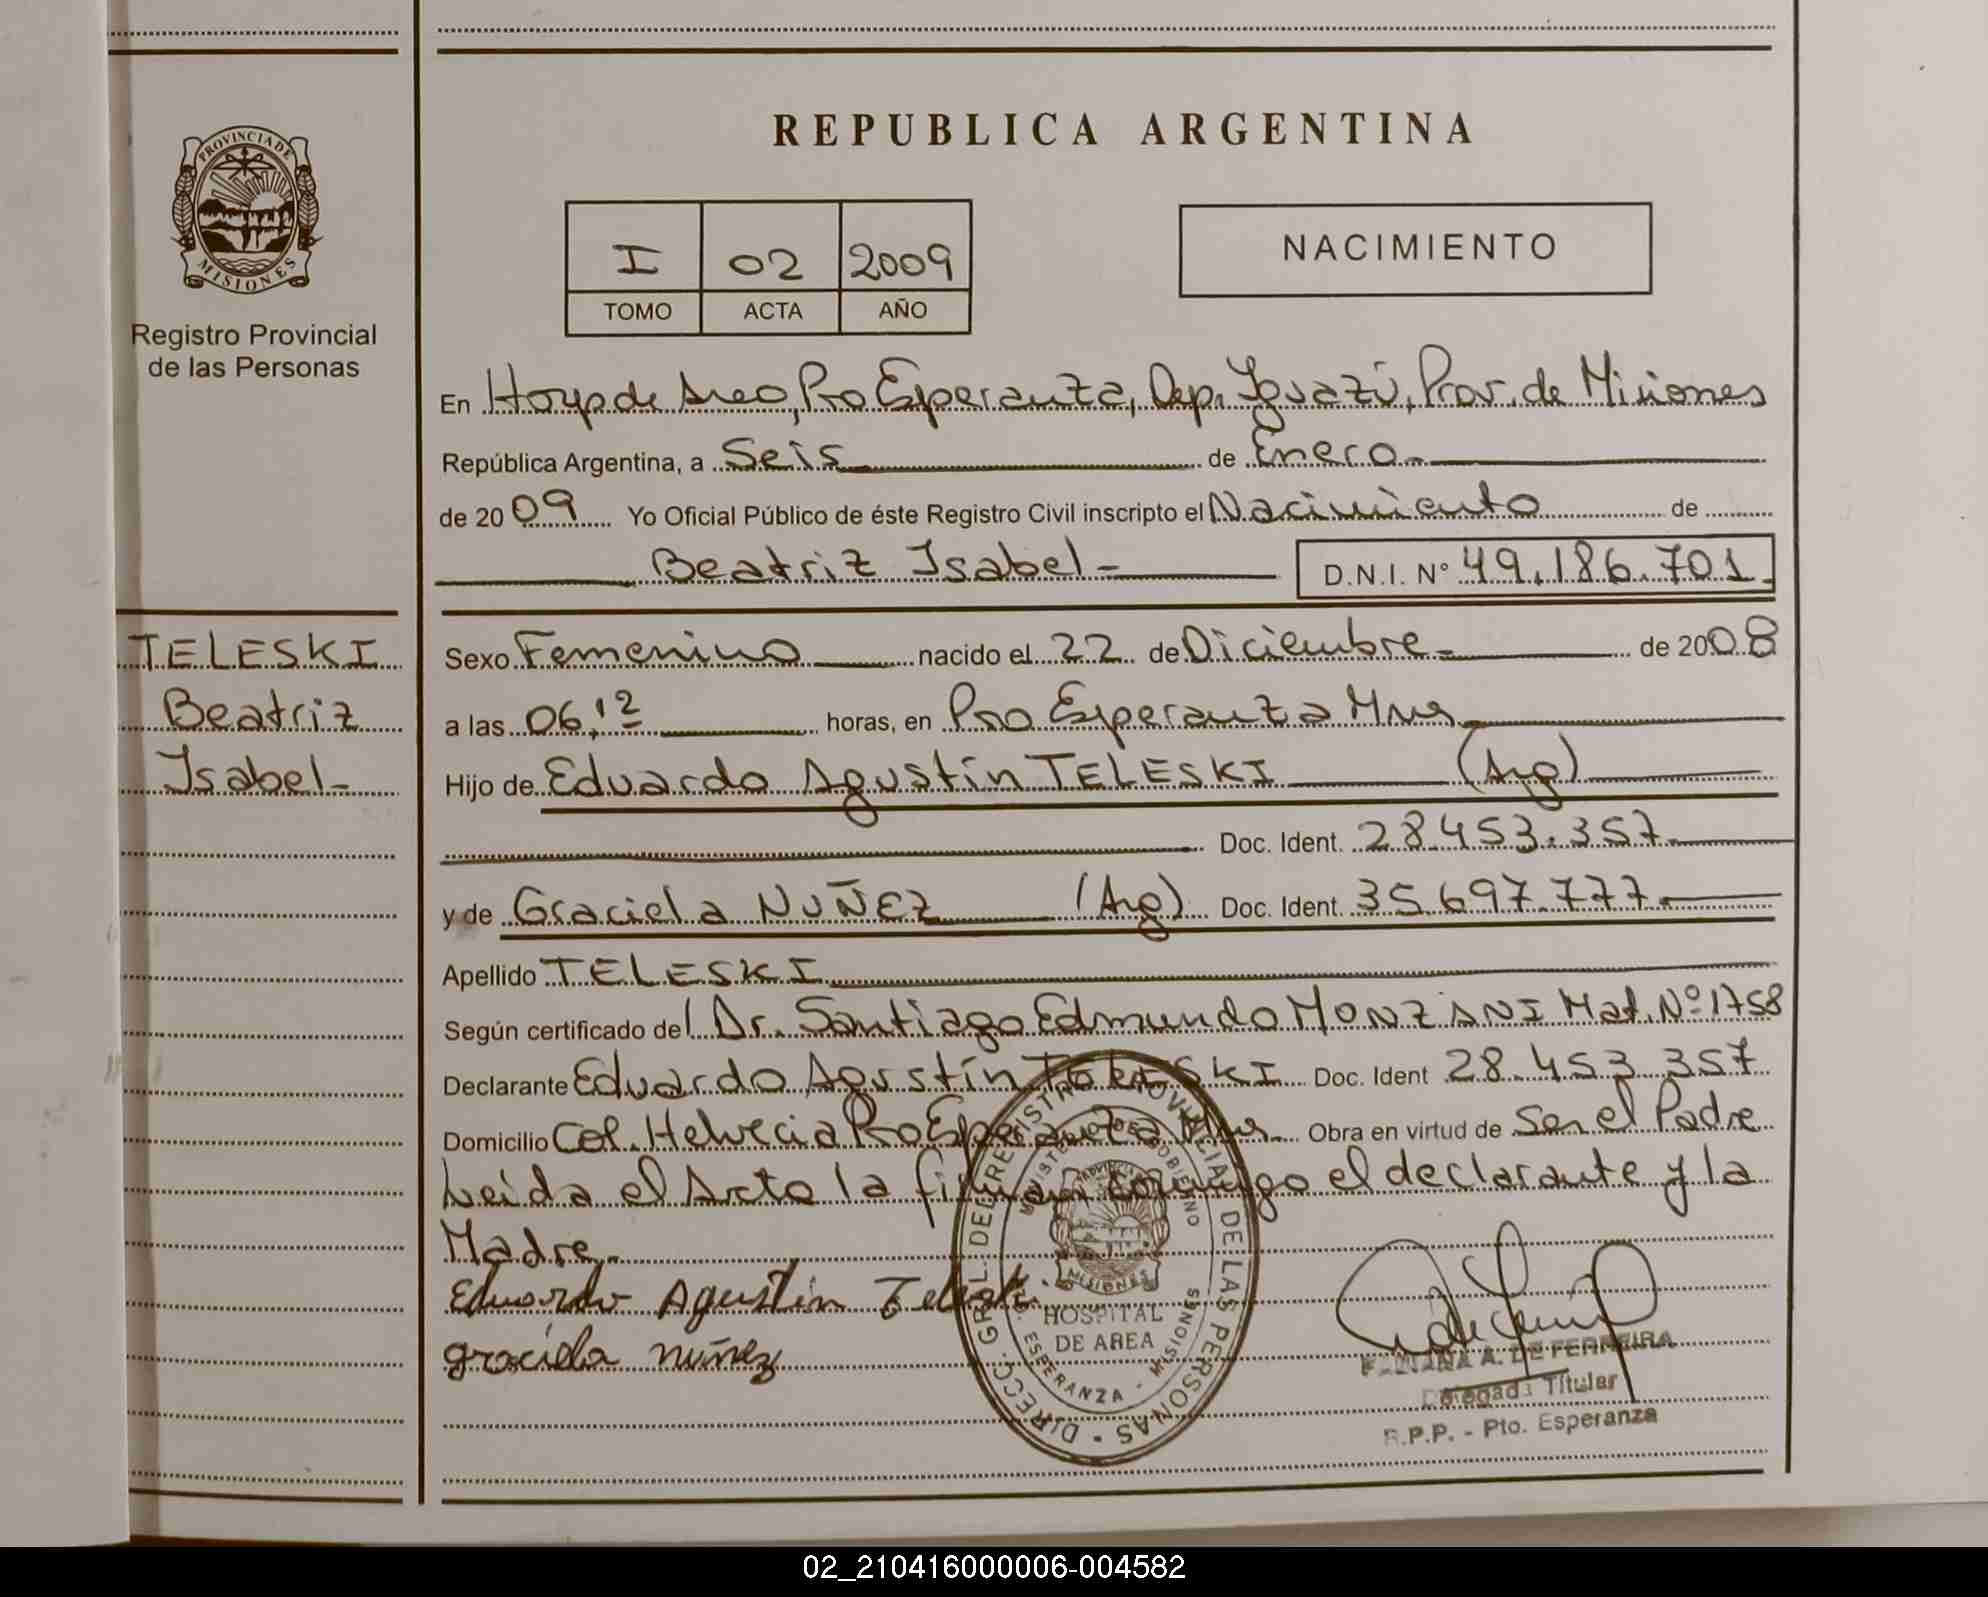 PROVINCIA DE
MISIONES
Registro Provincial
de las Personas
TELESKI
Beatriz
Isabel-
REPUBLICA ARGENTINA
I 02 2009
TOMO ACTA AÑO
NACIMIENTO
En Hosp de Area, Pto Esperanza, Dep. Iguazú, Prov. de Misiones
República Argentina, a Seis de Enero
de 2009 Yo Oficial Público de éste Registro Civil inscripto el Nacimiento de
Beatriz Isabel- D.N.I. N° 49.186.701
Sexo Femenino nacido el 22 de Diciembre de 2008
a las 06,12 horas, en Pto Esperanza Mnes
Hijo de Eduardo Agustín TELESKI (Arg)
Doc. Ident. 28.453.357
y de Graciela NUÑEZ (Arg) Doc. Ident. 35.697.777
Apellido TELESKI
Según certificado del Dr. Santiago Edmundo MONZANI Mat. Nº 1758
Declarante Eduardo Agustín TELESKI Doc. Ident 28.453.357
Domicilio Col. Helvecia Pto Esperanza Mnes Obra en virtud de Ser el Padre
Leida el Acta la firman conmigo el declarante y la
Madre.
Eduardo Agustin Teleski
graciela nuñez
DIRECC. GRAL. DEL REGISTRO PROVINCIAL DE LAS PERSONAS
MINISTERIO DE GOBIERNO
PROVINCIA DE
MISIONES
HOSPITAL
DE AREA
ESPERANZA - MISIONES
A. DE FERREIRA
Delegada Titular
R.P.P. - Pto. Esperanza
02_210416000006-004582